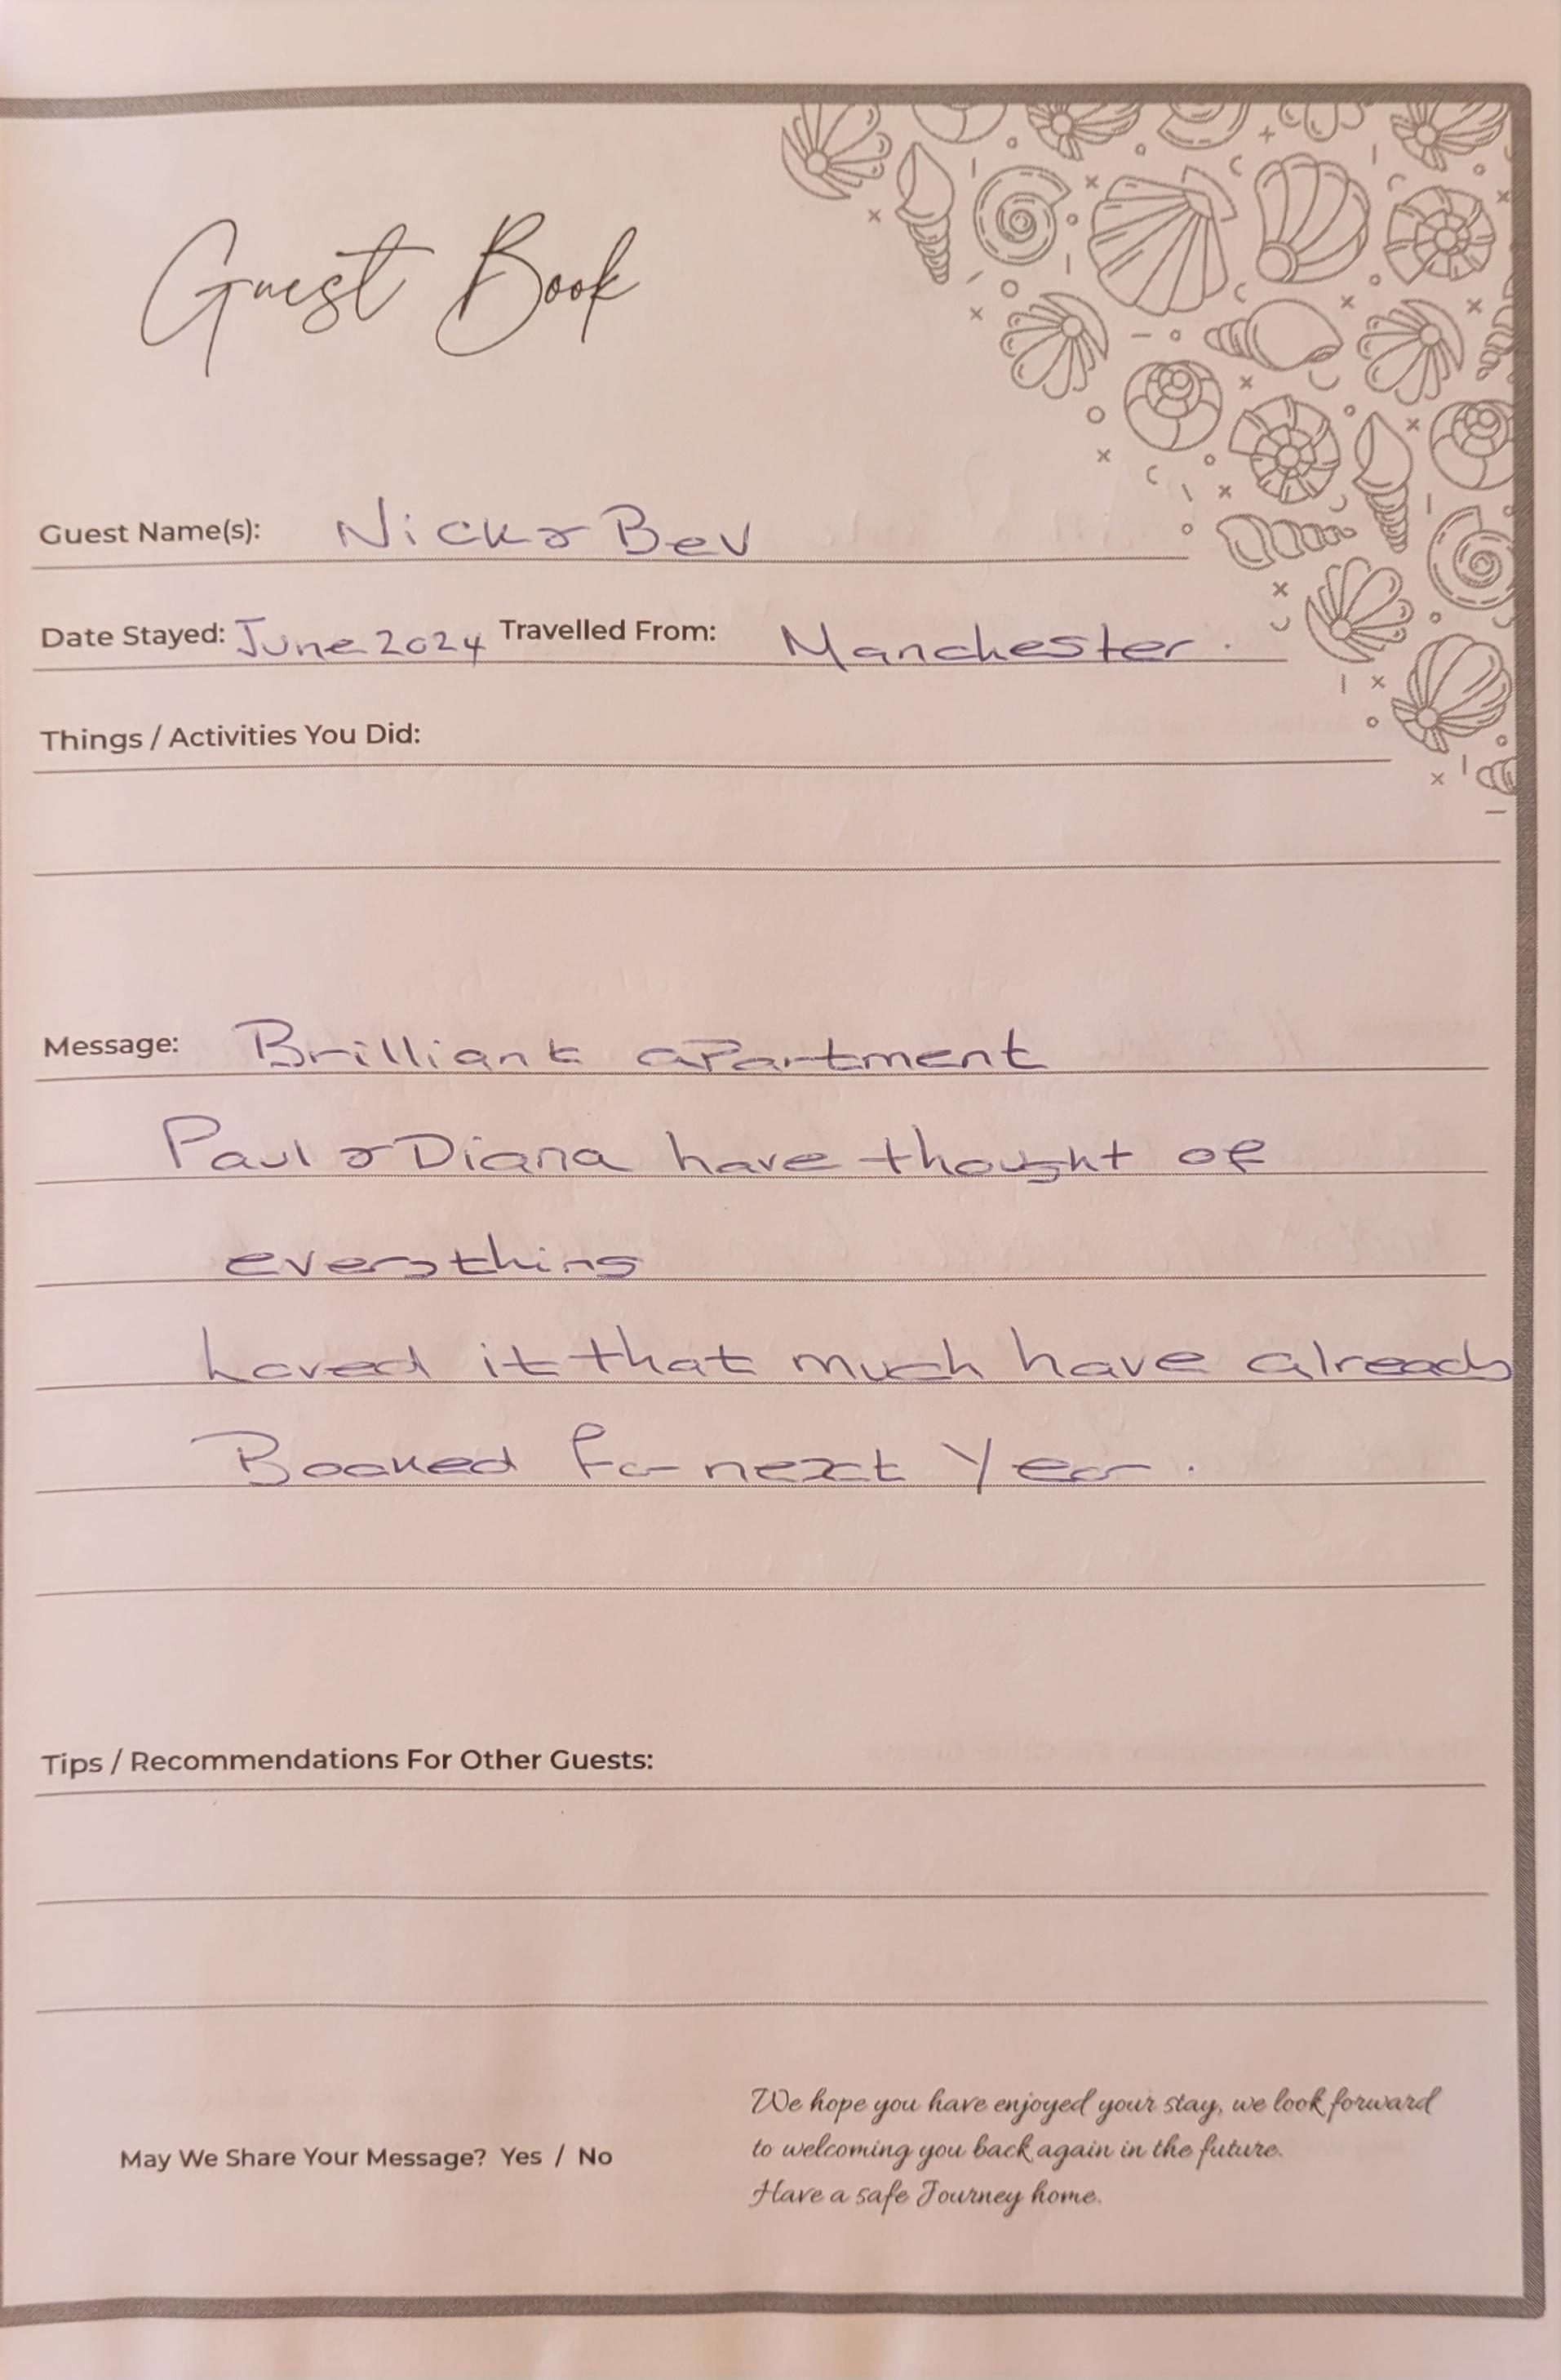 Guest Book
Guest Name(s): Nick & Bev
Date Stayed: June 2024 Travelled From: Manchester.
Things / Activities You Did:
Message: Brilliant apartment
Paul & Diana have thought of
everything
Loved it that much have already
Booked for next Year.
Tips / Recommendations For Other Guests:
May We Share Your Message? Yes / No
We hope you have enjoyed your stay, we look forward
to welcoming you back again in the future.
Have a safe Journey home.